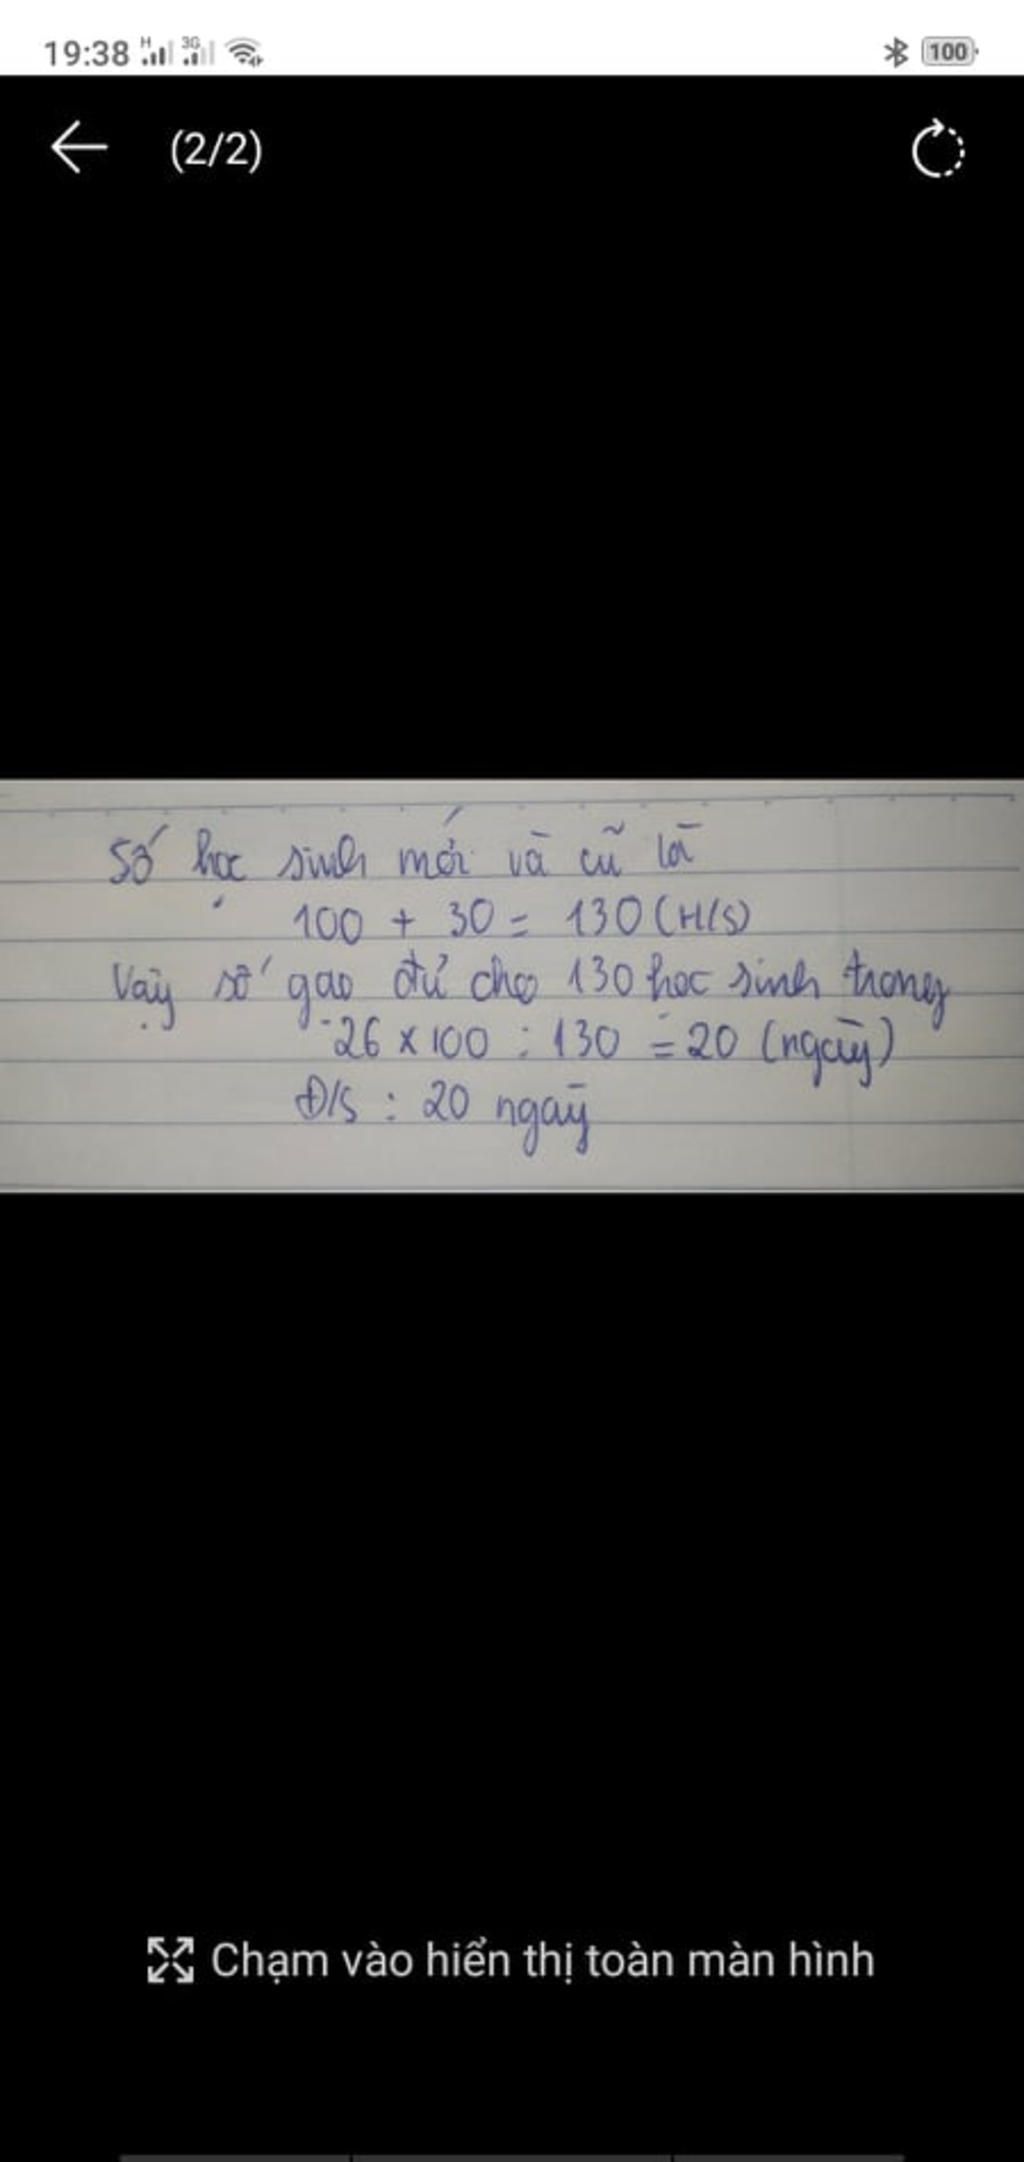 19:38 H 3G 100
(2/2)
Số học sinh mới và cũ là
100 + 30 = 130 (H/S)
Vậy số gạo đủ cho 130 học sinh trong
26 x 100 : 130 = 20 (ngày)
Đ/S : 20 ngày
Chạm vào hiển thị toàn màn hình